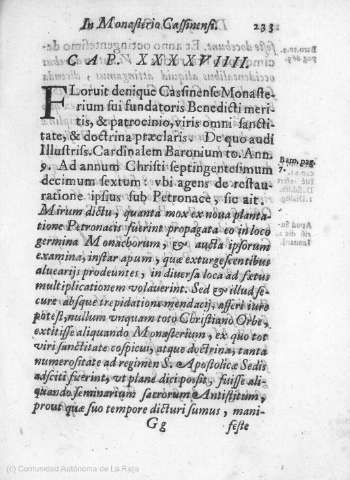 In Monasterio Cassinensi. 233
CAP. XXXXVIIII.
FLoruit denique Cassinense Monaste-
rium sui fundatoris Benedicti meri-
tis, & patrocinio, viris omni sancti-
tate, & doctrina præclaris. De quo audi
Illustriss. Cardinalem Baronium to. Ann.
9. Ad annum Christi septingentesimum
Baron. pag.
7.
decimum sextum: vbi agens de restau-
ratione ipsius sub Petronace, sic ait.
Mirum dictu, quanta mox ex noua planta-
tione Petronacis fuerint propagata eo in loco
germina Monachorum, & aucta ipsorum
examina, instar apum, quæ exturgescentibus
aluearijs prodeuntes, in diuersa loca ad fœtus
multiplicationem volauerint. Sed & illud se-
cure absque trepidatione mendacij, asseri iure
potest, nullum vnquam toto Christiano Orbe,
extitisse aliquando Monasterium, ex quo tot
viri sanctitate cospicui, atque doctrina, tanta
numerositate ad regimen S. Apostolicæ Sedis
adsciti fuerint, vt plane dici possit, fuisse ali-
quando seminarium sacrorum Antistitum,
prout quæ suo tempore dicturi sumus, mani-
Gg feste
(c) Comunidad Autónoma de La Rioja